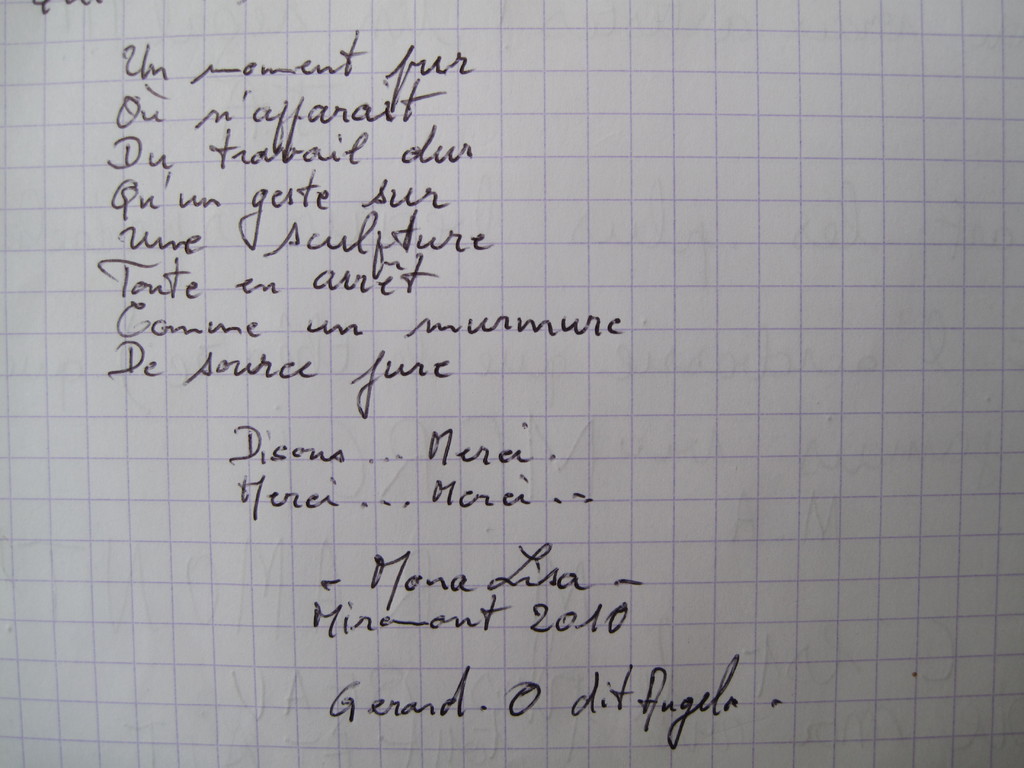 Un moment pur
Où n'apparait
Du travail dur
Qu'un geste sur
une sculpture
Toute en arrêt
Comme un murmure
De source pure
Disons... Merci.
Merci... Merci..-
- Mona Lisa -
Miramont 2010
Gerard. O dit Angelo.